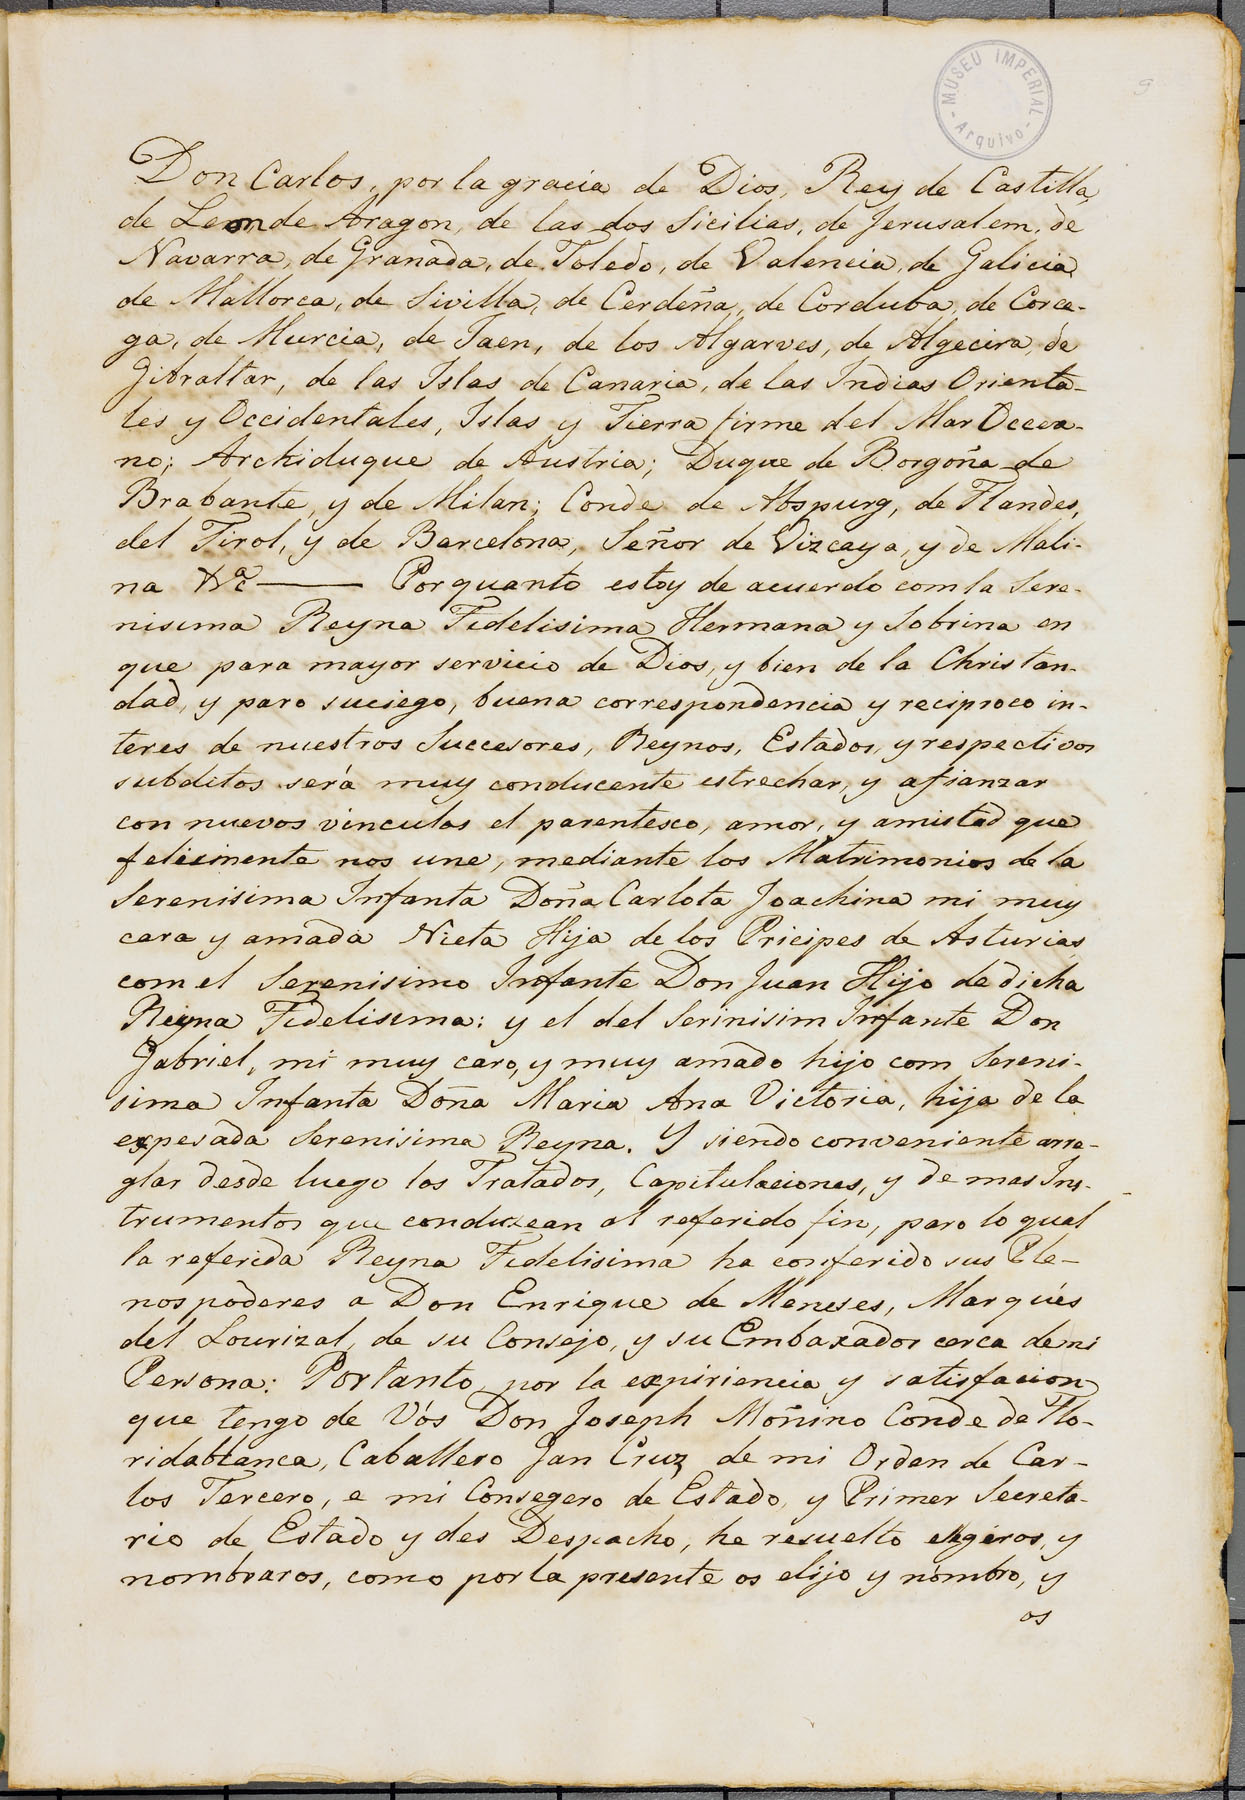 MUSEU IMPERIAL
- Arquivo -
9
Don Carlos, por la gracia de Dios, Rey de Castilla,
de Leon de Aragon, de las dos Sicilias, de Jerusalem, de
Navarra, de Granada, de Toledo, de Valencia, de Galicia,
de Mallorca, de Sivilla, de Cerdeña, de Corduba, de Corce-
ga, de Murcia, de Jaen, de los Algarves, de Algecira, de
Gibraltar, de las Islas de Canaria, de las Indias Orienta-
les y Occidentales, Islas y Tierra firme del Mar Occea-
no; Archiduque de Austria; Duque de Borgoña de
Brabante, y de Milan; Conde de Abspurg, de Flandes,
del Tirol, y de Barcelona, Señor de Vizcaya, y de Moli-
na &ª — Por quanto estoy de acuerdo com la Sere-
nisima Reyna Fidelisima Hermana y Sobrina en
que para mayor servicio de Dios, y bien de la Christan-
dad, y paro suciego, buena correspondencia y reciproco in-
teres de nuestros Succesores, Reynos, Estados, y respectivos
subditos será muy conducente estrechar, y afianzar
con nuevos vinculos el parentesco, amor, y amistad que
felicimente nos une, mediante los Matrimonios de la
Serenisima Infanta Doña Carlota Joachina mi muy
cara y amada Nieta Hija de los Pricipes de Asturias,
com el Serenisimo Infante Don Juan Hijo de dicha
Reyna Fidelisima: y el del Serinisim Infante Don
Gabriel, mi muy caro, y muy amado hijo com Sereni-
sima Infanta Doña Maria Ana Victoria, hija de la
expesada Serenisima Reyna. Y siendo conveniente arre-
glar desde luego los Tratados, Capitulaciones, y de mas Ins-
trumentos que conduzean al referido fin, paro lo qual
la referida Reyna Fidelisima ha conferido sus Ple-
nos poderes a Don Enrique de Meneses, Marqués
del Lourizal, de su Consejo, y su Embaxador cerca de mi
Persona: Por tanto por la expiriencia y satisfacion
que tengo de Vós Don Joseph Moñino Conde de Flo-
ridablanca, Caballero Jan Cruz de mi Orden de Car-
los Tercero, e mi Consegero de Estado, y Primer Secreta-
rio de Estado y des Despacho, he resuelto elegiros, y
nombraros, como por la presente os elijo y nómbro, y
os